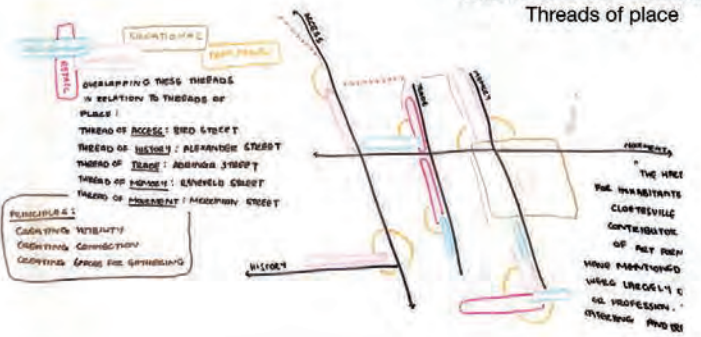 Threads of place
EDUCATIONAL
RETAIL
OVERLAPPING THESE THREADS
IN RELATION TO THREADS OF
PLACE:
THREAD OF ACCESS: BIRD STREET
THREAD OF HISTORY: ALEXANDER STREET
THREAD OF TRADE: ADRINGA STREET
THREAD OF MEMORY: STREET
THREAD OF MOVEMENT: MERRIMAN STREET
PRINCIPLES:
CREATING
CREATING CONNECTION
CREATING SPACES FOR GATHERING
ACCESS
TRADE
MEMORY
MOVEMENT
HISTORY
"THE
FOR INHABITANTS
CLOETESVILLE
CONTRIBUTOR
OF ART FORM
MENTIONED
WERE LARGELY
OR PROFESSION.
CATERING AND